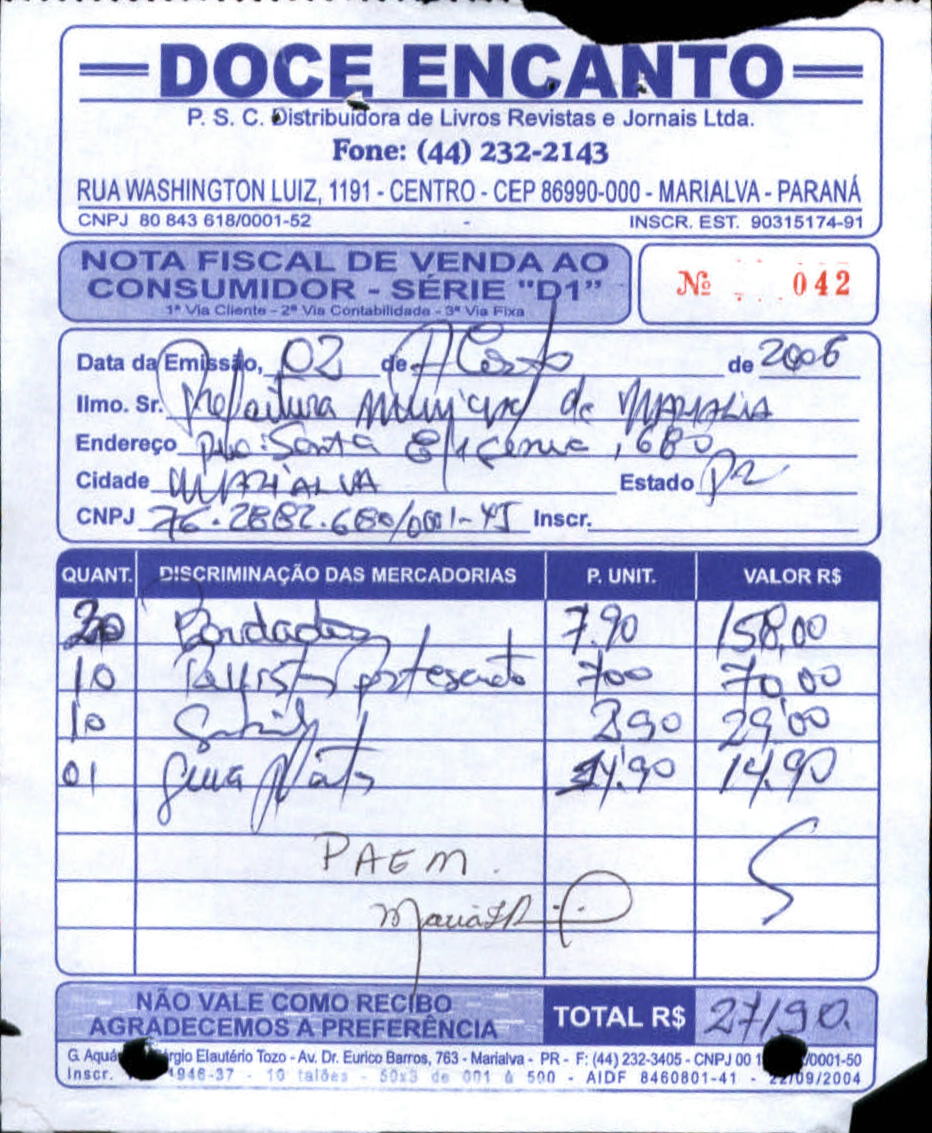 DOCE ENCANTO
P. S. C. Distribuidora de Livros Revistas e Jornais Ltda.
Fone: (44) 232-2143
RUA WASHINGTON LUIZ, 1191 - CENTRO - CEP 86990-000 - MARIALVA - PARANÁ
CNPJ 80 843 618/0001-52 - INSCR. EST. 90315174-91
NOTA FISCAL DE VENDA AO
CONSUMIDOR - SÉRIE "D1"
1ª Via Cliente - 2ª Via Contabilidade - 3ª Via Fixa
Nº 042
Data da Emissão, 02 de Agosto de 2006
Ilmo. Sr. Prefeitura Municipal de
Endereço Santa Efigenia, 680
Cidade MARIALVA Estado PR
CNPJ 76.2882.680/0001- Inscr.
QUANT. DISCRIMINAÇÃO DAS MERCADORIAS P. UNIT. VALOR R$
20 Bordados 7.90 158,00
10 700 70,00
10 290 29,00
01 14.90 14.90
PAEM.
NÃO VALE COMO RECIBO
AGRADECEMOS A PREFERÊNCIA
TOTAL R$ 271,90.
G. Elautério Tozo - Av. Dr. Eurico Barros, 763 - Marialva - PR - F: (44) 232-3405 - CNPJ 00 /0001-50
Inscr. 1946-37 - 10 talões - 50x3 de 001 à 500 - AIDF 8460801-41 - 22/09/2004